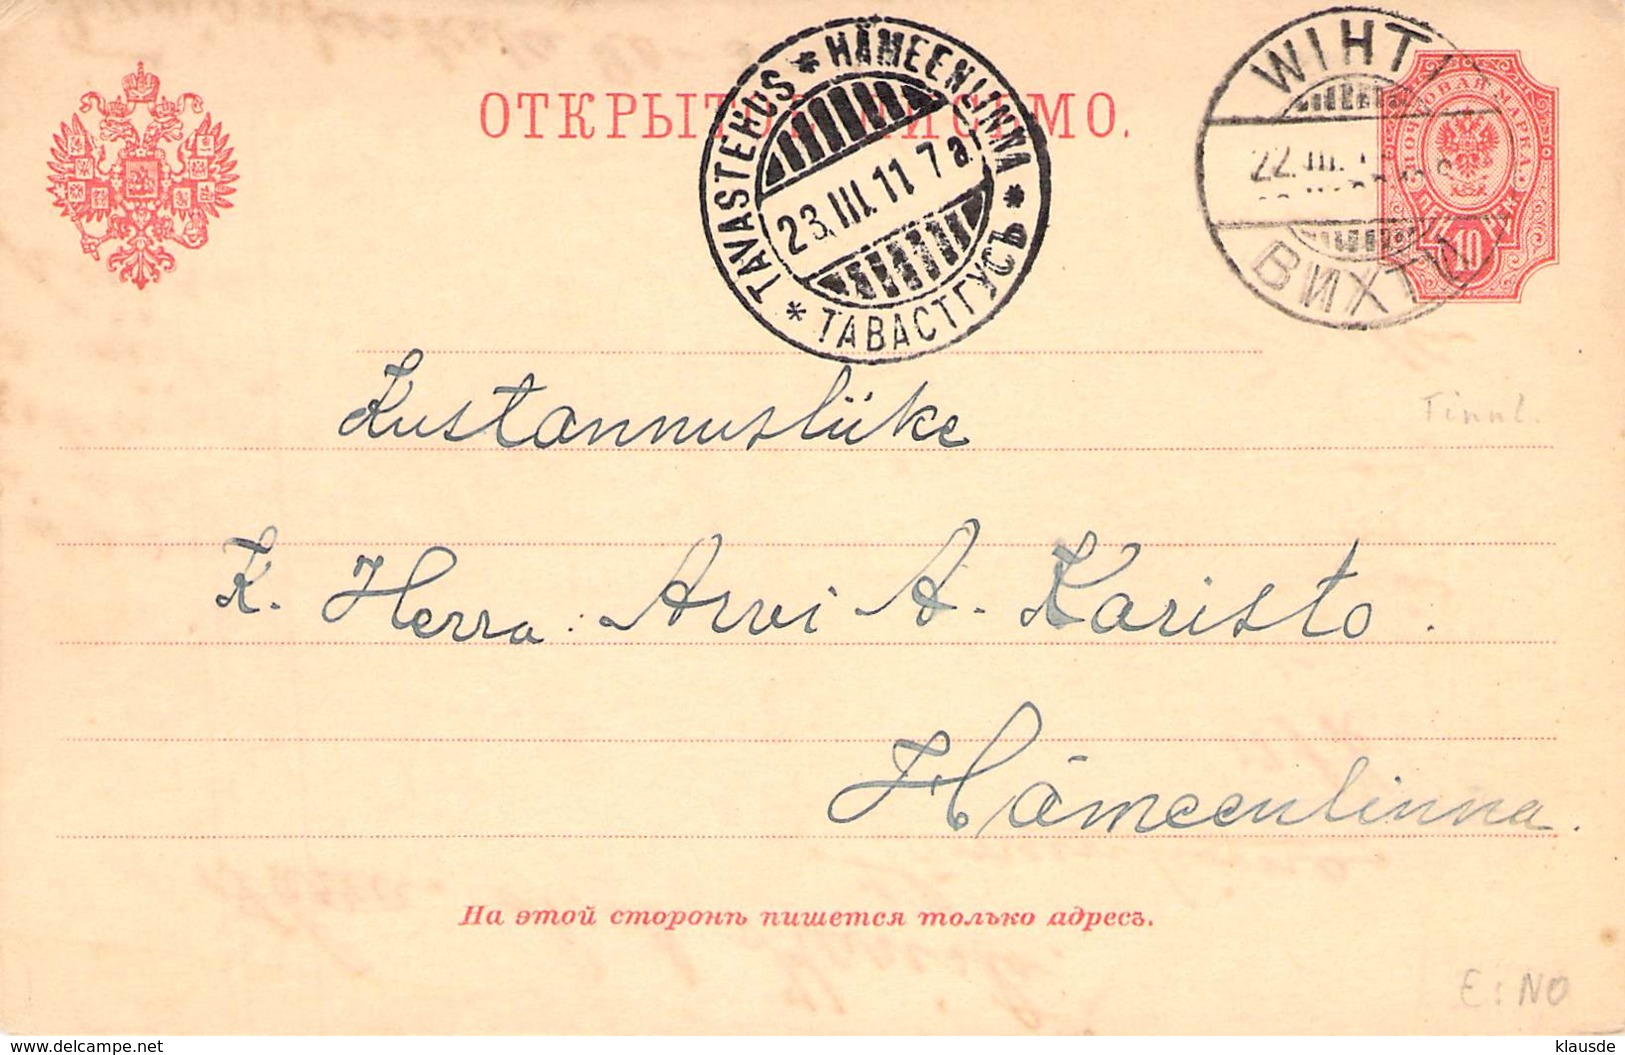 ОТКРЫТОЕ ПИСЬМО.
TAVASTEHUS * HÄMEENLINNA * ТАВАСТГУСЪ *
23.III.11. 7a
WIHTI
22.III.
ВИХТИ
ПОЧТОВАЯ МАРКА.
10
Kustannusliike
Finnl.
K. Herra Arvi A. Karisto.
Hämeenlinna.
На этой сторонѣ пишется только адресъ.
E: NO
delcampe.net
klausde